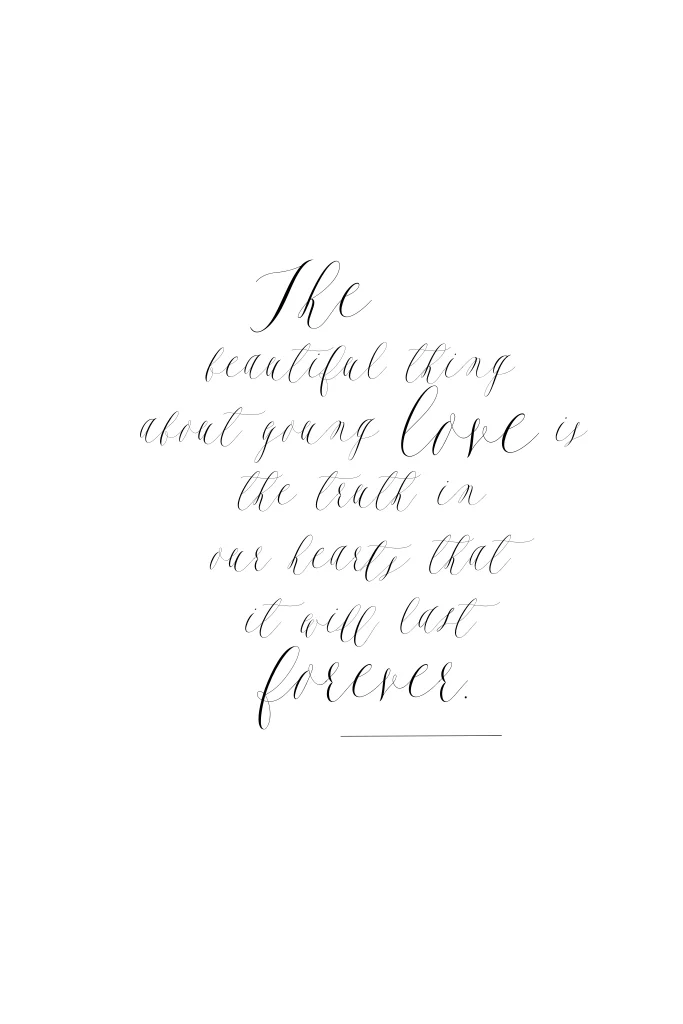 The
beautiful thing
about young love is
the truth in
our hearts that
it will last
forever.